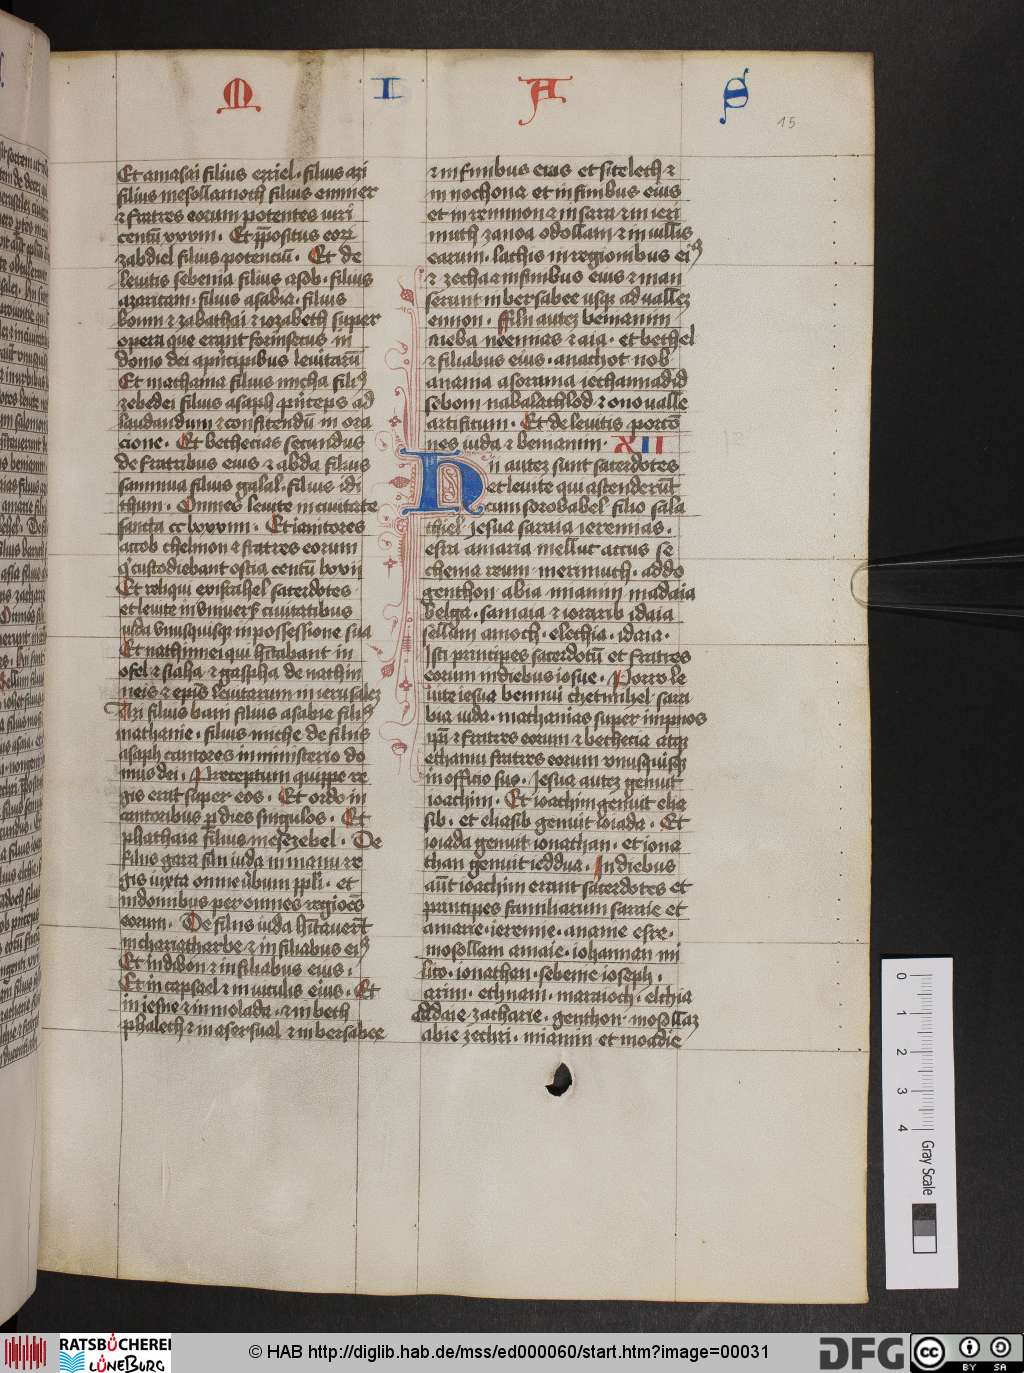 M I A S
15
Et amasai filius ezriel · filius azi
filius mosollamoth filius emmer
⁊ fratres eorum potentes viri
centū xxvııı · Et p̄positus eorū
zabdiel filius potentiū · Et de
levitis sebenia filius asob · filius
azaricam · filius asabia · filius
boum ⁊ zabathai ⁊ iozabeth super
opera que erant forinsecus in
domo dei a principibus levitarū
Et mathania filius micha filiꝰ
zebedei filius asaph princeps ad
laudandum ⁊ confitendū in ora
cione · Et bethecias secundus
de fratribus eius ⁊ abda filius
sammua filius galal · filius idi
thum · Omnes levite in civitate
sancta cc lxxxıııı · Et ianitores
accob thelmon ⁊ fratres eorum
q̇ custodiebant ostia centū lxxıı
Et reliqui ex israhel sacerdotes
et levite in univers̄ civitatibus
iuda unusquisque in possessione sua
Et nathinnei qui h̄itabant in
ofel ⁊ siaha ⁊ gaspha de nathin
neis ⁊ ep̄us levitarum in ierusalez
Azi filius bani filius asabie filiꝰ
mathanie · filius miche de filiis
asaph cantores in ministerio do
mus dei · Preceptum quippe re
gis erat super eos · Et ordo in
cantoribus ꝑ dies singulos · Et
phathaia filius mesezebel · De
filiis zara filii iuda in manu re
gis iuxta omne v̄bum ppl̄i · et
in domibus per omnes regiōes
eorum · De filiis iuda h̄itaverūt
in chariatharbe ⁊ in filiabus eiꝰ
Et in dibon ⁊ in filiabus eius ·
Et in capsael ⁊ in viculis eius · Et
in iesue ⁊ in molada · ⁊ in beth
phaleth ⁊ in asersual ⁊ in bersabee
⁊ in finibus eius et siceleth ⁊
in mochona et in finibus eius
et in remmon ⁊ in sara ⁊ in ieri
muth zanoa odollam ⁊ in villis
earum · lachis in regionibus eiꝰ
⁊ zecha ⁊ in finibus eius ⁊ man
serunt in bersabee usq̄ ad vallez
ennon · Filii autez beniamin
a ieba meemas ⁊ aia · et bethel
⁊ filiabus eius · anathot nob ·
anania asorama iethannadid
seboim nabalathlod ⁊ ono valle
artificum · Et de levitis portō
nes iuda ⁊ beniamin · XII
Hii autez sunt sacerdotes
et levite qui ascenderūt
cum sorobabel filio sala
thiel · iesua saraia ieremias ·
esra amaria mellut attus se
chema reum · merimuth · addo
genthon abia miamin madaia
belga · samaia ⁊ ioiarib idaia
sellam amoch · elethia · idaia ·
Isti principes sacerdotū et fratres
eorum in diebus iosue · Porro le
vite iesua bennui chetmihel sara
bia iuda · mathanias super impnos
ip̄i ⁊ fratres eorum ⁊ bethecia atq̄
et hanni fratres eorum unusquisq̄
in officio suo · Iesua autez genuit
ioachim · Et ioachim genuit elia
sib · et eliasib genuit ioiada · Et
ioiada genuit ionathan · et iona
than genuit ieddua · In diebus
aūt ioachim erant sacerdotes et
principes familiarum saraie et
amarie · ieremie · ananie esre ·
mosollam amaie · iohannan mi
lico · ionathan · sebenie ioseph ·
arim · ethnam · maraioch · elchia
addaie zacharie · genthon mosollaz
abie zechri · miamin et moadie
0 1 2 3 4
Gray Scale
RATSBÜCHEREI LÜNEBURG
© HAB http://diglib.hab.de/mss/ed000060/start.htm?image=00031
DFG
CC BY SA